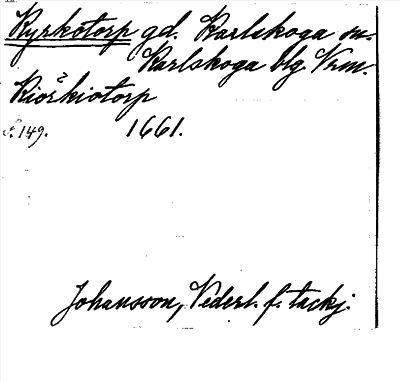 Kyrkotorp gd. Karlskoga sn.
Karlskoga blg Vrm.
Kiörkiotorp
s. 149. 1661.
Johansson, Vederl. f. tackj.